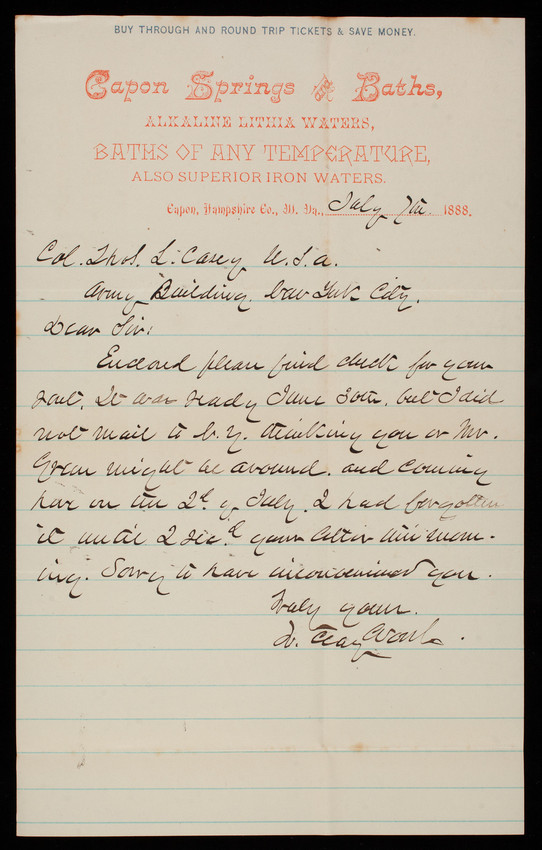 BUY THROUGH AND ROUND TRIP TICKETS & SAVE MONEY.
Capon Springs and Baths,
ALKALINE LITHIA WATERS,
BATHS OF ANY TEMPERATURE,
ALSO SUPERIOR IRON WATERS.
Capon, Hampshire Co., W. Va., July 7th. 1888.
Col. Thos. L. Casey U.S.A.
Army Building, New York City.
Dear Sir:
Enclosed please find check for your
rent. It was ready June 30th. but I did
not mail to N.Y. thinking you or Mr.
Green might be around. and coming
here on the 2d. of July. I had forgotten
it until I recd. your letter this morn-
ing. Sorry to have inconvenienced you.
Truly yours.
Clay